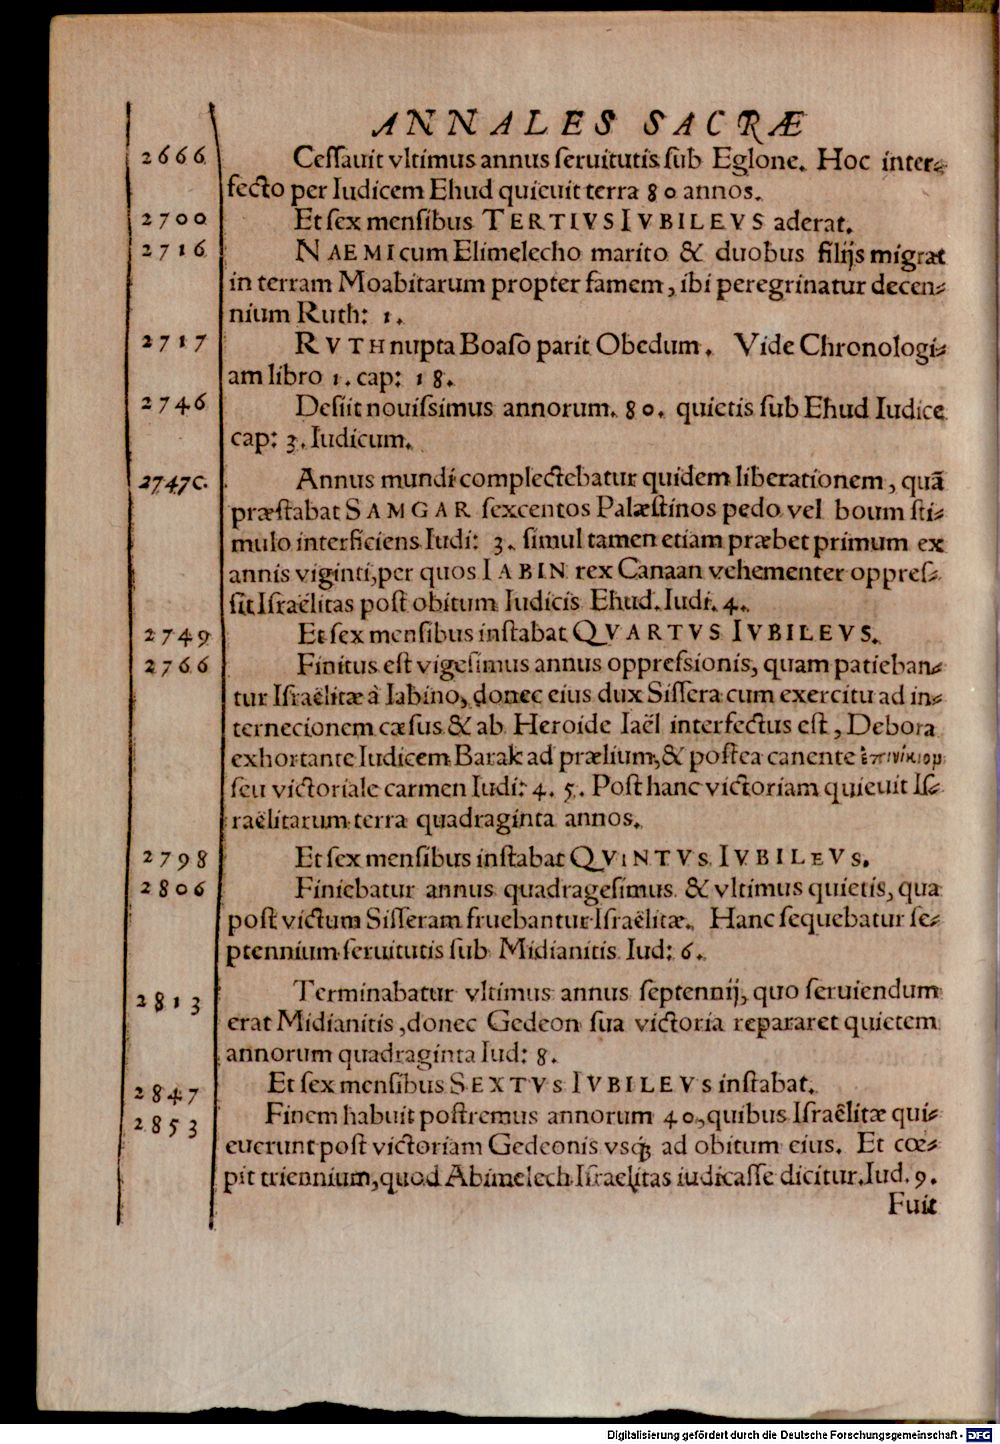 ANNALES SACRÆ
2666 Ceſſauit vltimus annus ſeruitutis ſub Eglone. Hoc inter-
fecto per Iudicem Ehud quieuit terra 80 annos.
2700 Et ſex menſibus TERTIVS IVBILEVS aderat.
2716 NAEMI cum Elimelecho marito & duobus filijs migrat
in terram Moabitarum propter famem, ibi peregrinatur decen-
nium Ruth: 1.
2717 RVTH nupta Boaſo parit Obedum. Vide Chronologi-
am libro 1. cap: 18.
2746 Deſijt nouiſsimus annorum. 80. quietis ſub Ehud Iudice
cap: 3. Iudicum.
2747C. Annus mundi complectebatur quidem liberationem, quā
præſtabat SAMGAR ſexcentos Palæſtinos pedo vel boum ſti-
mulo interficiens Iudi: 3. ſimul tamen etiam præbet primum ex
annis viginti, per quos IABIN rex Canaan vehementer oppreſ-
ſit Iſraëlitas poſt obitum Iudicis Ehud. Iudi. 4.
2749 Et ſex menſibus inſtabat QVARTVS IVBILEVS.
2766 Finitus eſt vigeſimus annus oppreſsionis, quam patieban-
tur Iſraëlitæ à Iabino, donec eius dux Siſſera cum exercitu ad in-
ternecionem cæſus & ab Heroide Iaël interfectus eſt, Debora
exhortante Iudicem Barak ad prælium, & poſtea canente ἐπινίκιον
ſeu victoriale carmen Iudi: 4. 5. Poſt hanc victoriam quieuit Iſ-
raëlitarum terra quadraginta annos.
2798 Et ſex menſibus inſtabat QVINTVS IVBILEVS.
2806 Finiebatur annus quadrageſimus & vltimus quietis, qua
poſt victum Siſſeram fruebantur Iſraëlitæ. Hanc ſequebatur ſe-
ptennium ſeruitutis ſub Midianitis Iud: 6.
2813 Terminabatur vltimus annus ſeptennij, quo ſeruiendum
erat Midianitis, donec Gedeon ſua victoria repararet quietem
annorum quadraginta Iud: 8.
2847 Et ſex menſibus SEXTVS IVBILEVS inſtabat.
2853 Finem habuit poſtremus annorum 40, quibus Iſraëlitæ qui-
euerunt poſt victoriam Gedeonis vsq; ad obitum eius. Et cœ-
pit triennium, quod Abimelech Iſraelitas iudicaſſe dicitur. Iud. 9.
Fuit
Digitalisierung gefördert durch die Deutsche Forschungsgemeinschaft - DFG